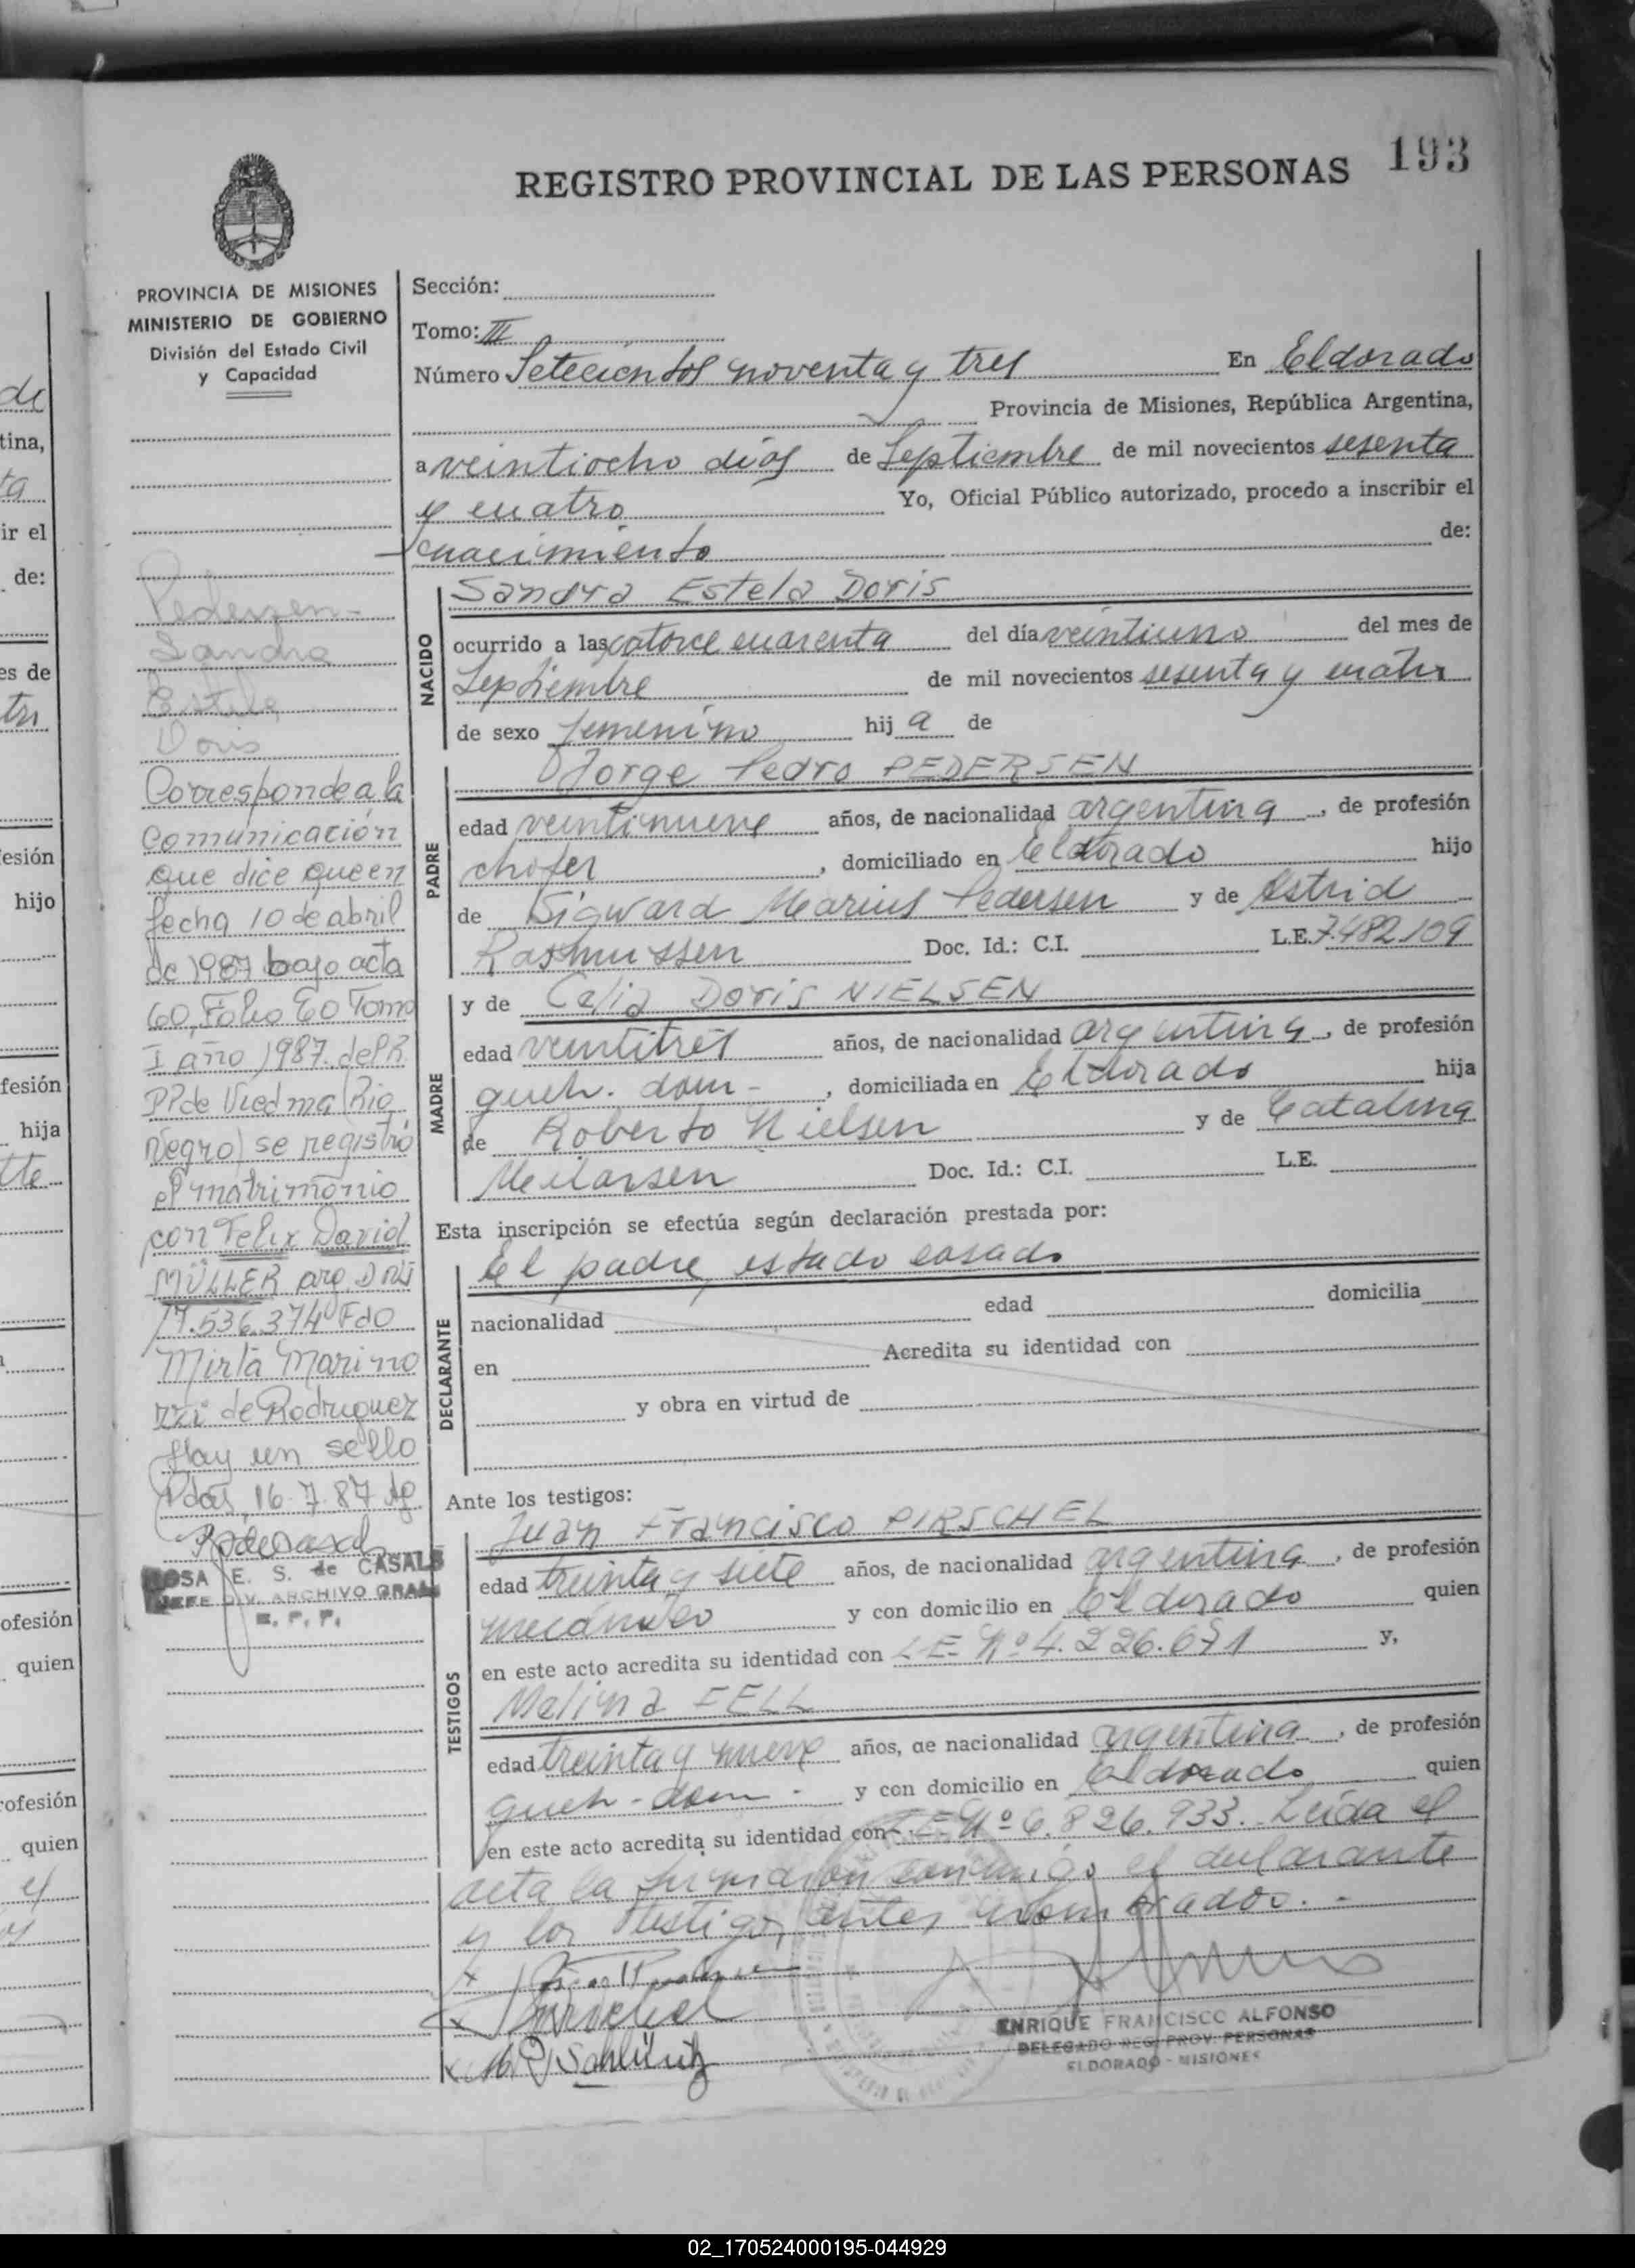 193
REGISTRO PROVINCIAL DE LAS PERSONAS
PROVINCIA DE MISIONES
MINISTERIO DE GOBIERNO
División del Estado Civil
y Capacidad
Pedersen-
Sandra
Estela
Doris
Corresponde a la
comunicación
que dice que en
fecha 10 de abril
de 1987 bajo acta
60, Folio 60 Tomo
I año 1987. del R.
PP de Viedma (Rio
Negro) se registró
el matrimonio
con Felix David
MÜLLER arg. DNI
17.536.374 Fdo
Mirta Marino
zzi de Rodriguez
Hay un sello
Pdas, 16-7-87
ROSA E. S. de CASALS
JEFE DIV. ARCHIVO GRAL
R. P. P.
Sección:
Tomo: III
Número Setecientos noventa y tres En Eldorado
Provincia de Misiones, República Argentina,
a veintiocho días de Septiembre de mil novecientos sesenta
y cuatro Yo, Oficial Público autorizado, procedo a inscribir el
nacimiento de:
NACIDO
Sandra Estela Doris
ocurrido a las catorce cuarenta del día veintiuno del mes de
Septiembre de mil novecientos sesenta y cuatro
de sexo femenino hij a de
PADRE
Jorge Pedro PEDERSEN
edad veintinueve años, de nacionalidad argentina, de profesión
chofer, domiciliado en Eldorado hijo
de Sigward Marius Pedersen y de Astrid
Rasmussen Doc. Id.: C.I. L.E. 7.482.109
MADRE
y de Celia Doris NIELSEN
edad veintitrés años, de nacionalidad argentina, de profesión
queh. dom-, domiciliada en Eldorado hija
de Roberto Nielsen y de Catalina
Doc. Id.: C.I. L.E.
Esta inscripción se efectúa según declaración prestada por:
DECLARANTE
El padre, estado casado
nacionalidad edad domicilia
en Acredita su identidad con
y obra en virtud de
Ante los testigos:
TESTIGOS
Juan Francisco PIRSCHEL
edad treinta y siete años, de nacionalidad argentina, de profesión
mecánico y con domicilio en Eldorado quien
en este acto acredita su identidad con L E- Nº 4.226.671 y,
Melina FELL
edad treinta y nueve años, de nacionalidad argentina, de profesión
queh-dom-. y con domicilio en Eldorado quien
en este acto acredita su identidad con L.E. Nº 6.826.933. Leida el
acta la firmaron conmigo el declarante
y los testigos antes nombrados.-
ENRIQUE FRANCISCO ALFONSO
DELEGADO REG. PROV. PERSONAS
ELDORADO - MISIONES
de
tina,
ta
ir el
de:
es de
tri
esión
hijo
fesión
hija
tte
ofesión
quien
rofesión
quien
el
02_170524000195-044929